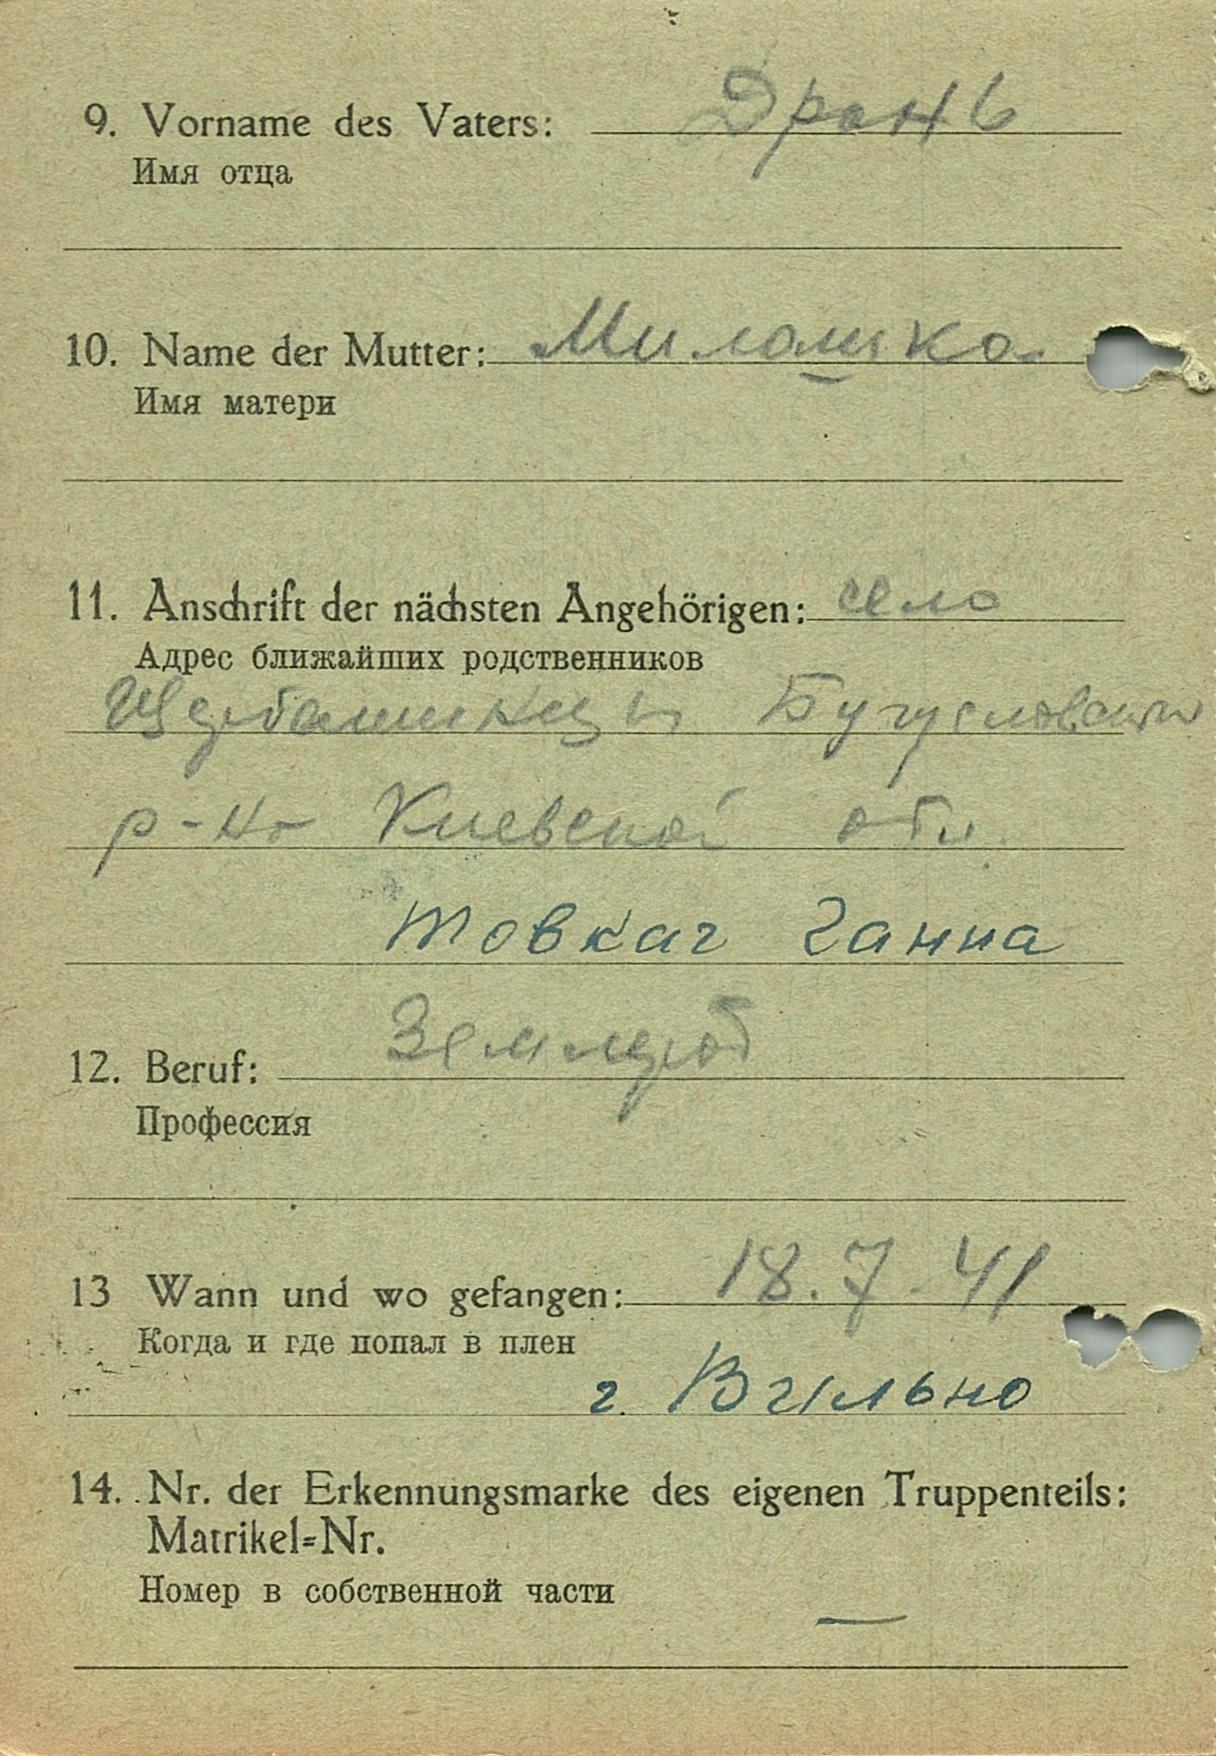 9. Vorname des Vaters: Дронь
Имя отца
10. Name der Mutter: Милашка
Имя матери
11. Anschrift der nächsten Angehörigen: село
Адрес ближайших родственников
р-на Киевской обл.
Товкач Ганна
Землероб
12. Beruf:
Профессия
13 Wann und wo gefangen: 18.7.41
Когда и где попал в плен
г. Вильно
14. Nr. der Erkennungsmarke des eigenen Truppenteils:
Matrikel=Nr.
Номер в собственной части
—